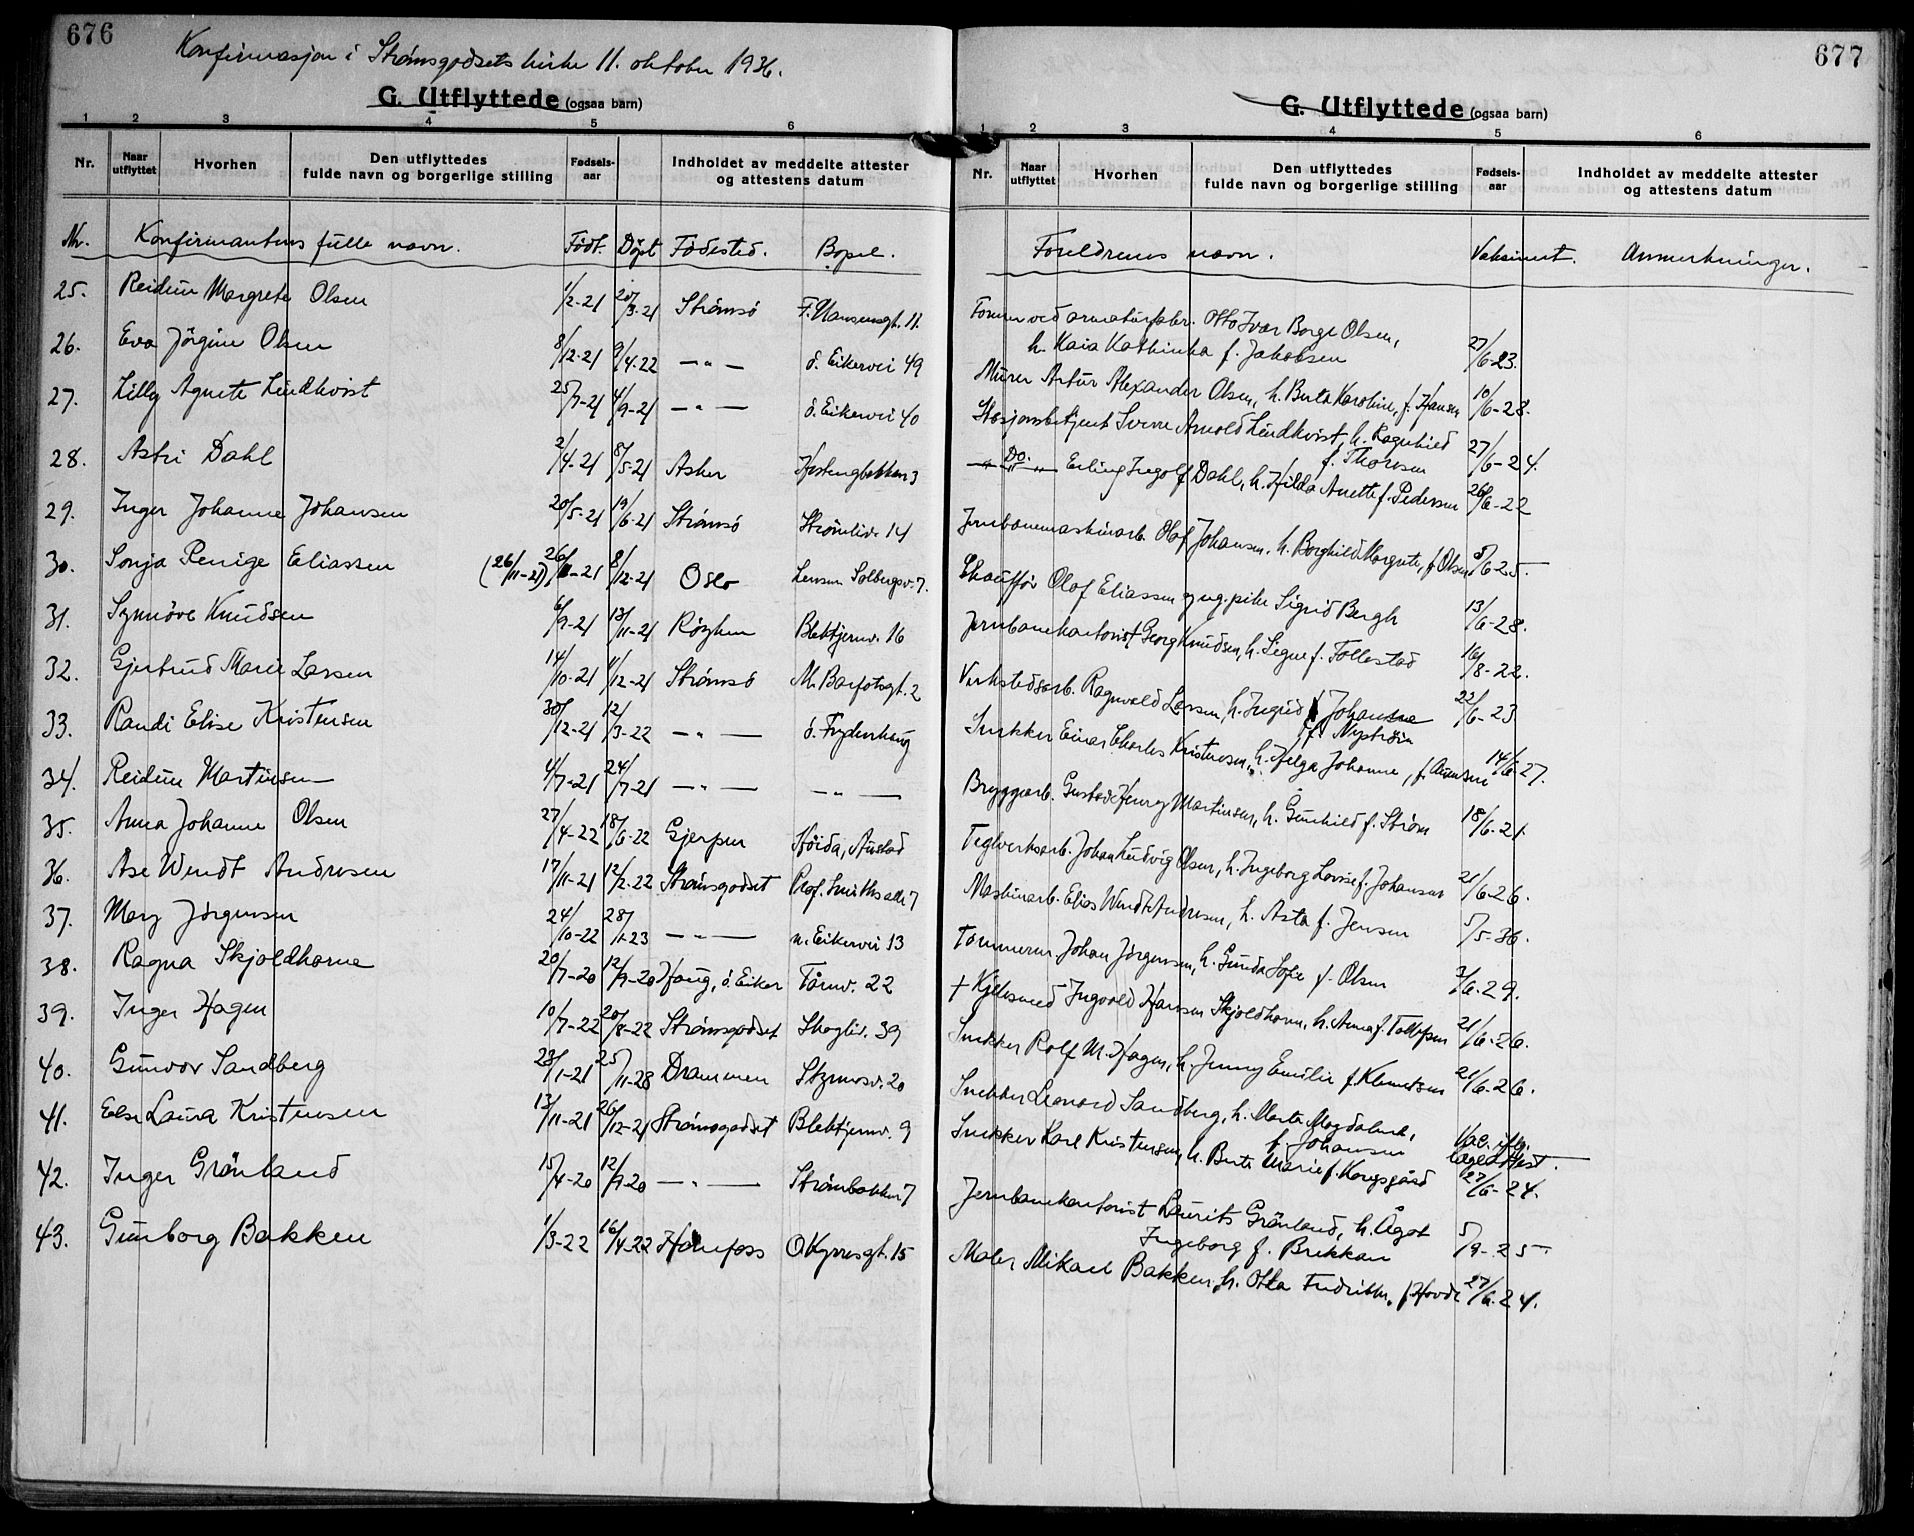 676
Konfirmasjon i Strømsgodsets kirke 11. oktober 1936.
G. Utflyttede (ogsaa barn)
1 2 3 4 5 6
Nr. Naar utflyttet Hvorhen Den utflyttedes fulde navn og borgerlige stilling Fødsels-aar Indholdet av meddelte attester og attestens datum
Nr. Konfirmantens fulle navn. Født. Døpt Fødested. Bopel.
25. Reidun Margrete Olsen 1/2-21 20/3-21 Strømsø F. Nansensgt. 11.
26. Eva Jörgine Olsen 8/12-21 9/4-22 — " — ö. Eikervei 49
27. Lilly Agnete Lindkvist 25/7-21 4/9-21 — " — ö. Eikervei 40
28. Astri Dahl 2/4-21 8/5-21 Asker
29. Inger Johanne Johansen 20/5-21 19/6-21 Strømsø Strömliv. 14
30. Sonja Eliassen (26/11-21) 26/11-21 8/12-21 Oslo Solbergsv. 7.
31. Synnöve Knudsen 6/9-21 13/11-21 Røyken Blektjernv. 16
32. Gjertrud Marie Larsen 14/10-21 11/12-21 Strømsö M. Barfotsgt. 2
33. Randi Elise Kristensen 30/12-21 12/3-22 — " — ö. Frydenhaug
34. Reidun Martinsen 4/7-21 24/7-21 — " — — " —
35. Anna Johanne Olsen 27/4-22 18/6-22 Gjerpen Höida, Austad
36. Åse Wendt Andresen 17/11-21 12/2-22 Strømsgodset Prof. Smiths alle 7
37. Mary Jørgensen 24/10-22 28/1-23 — " — n. Eikervei 13
38. Ragna Skjoldhorne 20/7-20 12/9-20 Haug, ö. Eiker Tårnv. 22
39. Inger Hagen 10/7-22 20/8-22 Strømsgodset Skogliv. 39
40. Gunvor Sandberg 23/1-21 25/11-28 Drammen Styrmosv. 20
41. Else Laura Kristensen 13/11-21 26/12-21 Strømsgodset Blektjernv. 9
42. Inger Grönland 15/4-20 12/9-20 — " — Strömbakken 7
43. Gunborg Bakken 1/3-22 16/4-22 Hönefoss O Kyrresgt. 15
677
G. Utflyttede (ogsaa barn)
1 2 3 4 5 6
Nr. Naar utflyttet Hvorhen Den utflyttedes fulde navn og borgerlige stilling Fødsels-aar Indholdet av meddelte attester og attestens datum
Foreldrenes navn. Vaksinert. Anmerkninger.
Former ved armaturfabr. Otto Ivar Borge Olsen,
h. Kaia Kathinka f. Jakobsen 27/6-23.
Murer Artur Alexander Olsen, h. Berta Karoline, f. Hansen 10/6-28.
Stasjonsbetjent Sverre Arnold Lindkvist, h. Ragnhild
f. Thoresen 27/6-24.
— " Do. " — Erling Ingolf Dahl, h. Hilda Anette f. Pedersen 26/6-22
Jernbanemaskinarb. Olaf Johansen, h. Borghild Margrete, f. Olsen 5/6-25.
Chauffør Olaf Eliassen og ug. pike Sigrid Bergh 13/6-28.
Jernbanekontorist Georg Knudsen, h. Signe f. Follestad 16/8-22.
Verkstedsarb. Ragnvald Larsen, h. Ingrid Johanne
f. Nyström 22/6-23
Snekker Einar Charles Kristensen, h. Helga Johanne, f. Amundsen 14/6-27.
Bryggearb. Gustav Henry Martinsen, h. Gunhild f. Ström 18/6-21.
Teglverksarb. Johan Ludvig Olsen, h. Ingeborg Lovise f. Johansen 21/6-26.
Maskinarb. Elias Wendt Andresen, h. Asta f. Jensen 5/5-36.
Tømmerm Johan Jörgensen, h. Gunda Sofie f. Olsen 3/6-29.
† Kjelesmed Ingvald Hansen Skjoldhorne, h. Anna f. Tollefsen 21/6-26.
Snekker Rolf M. Hagen, h. Jenny Emilie f. Klemetsen 21/6-26.
Snekker Leonard Sandberg, h. Marta Magdalene,
f. Johansen Vac. iflg. lægeattest.
Snekker Karl Kristensen, h. Berta Marie f. Kongsgård 27/6-24.
Jernbanekontorist Laurits Grönland, h. Ågot
Ingeborg f. Brekkan 5/9-25
Maler Mikael Bakken, h. Otta Fredrikke, f. Hovde 27/6-24.